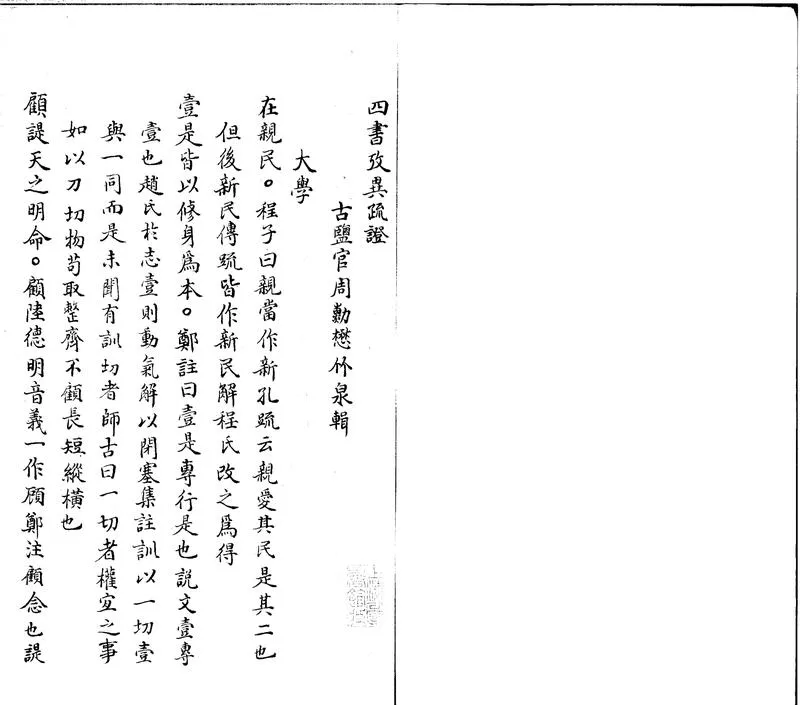 四書攷異疏證
古鹽官周勳懋竹泉輯
大學
在親民。程子曰親當作新孔疏云親愛其民是其二也
但後新民傳疏皆作新民解程氏改之爲得
壹是皆以修身爲本。鄭註曰壹是專行是也說文壹專
壹也趙氏於志壹則動氣解以閉塞集註訓以一切壹
與一同而是未聞有訓切者師古曰一切者權宜之事
如以刀切物苟取整齊不顧長短縱橫也
顧諟天之明命。顧陸德明音義一作顾鄭注顧念也諟